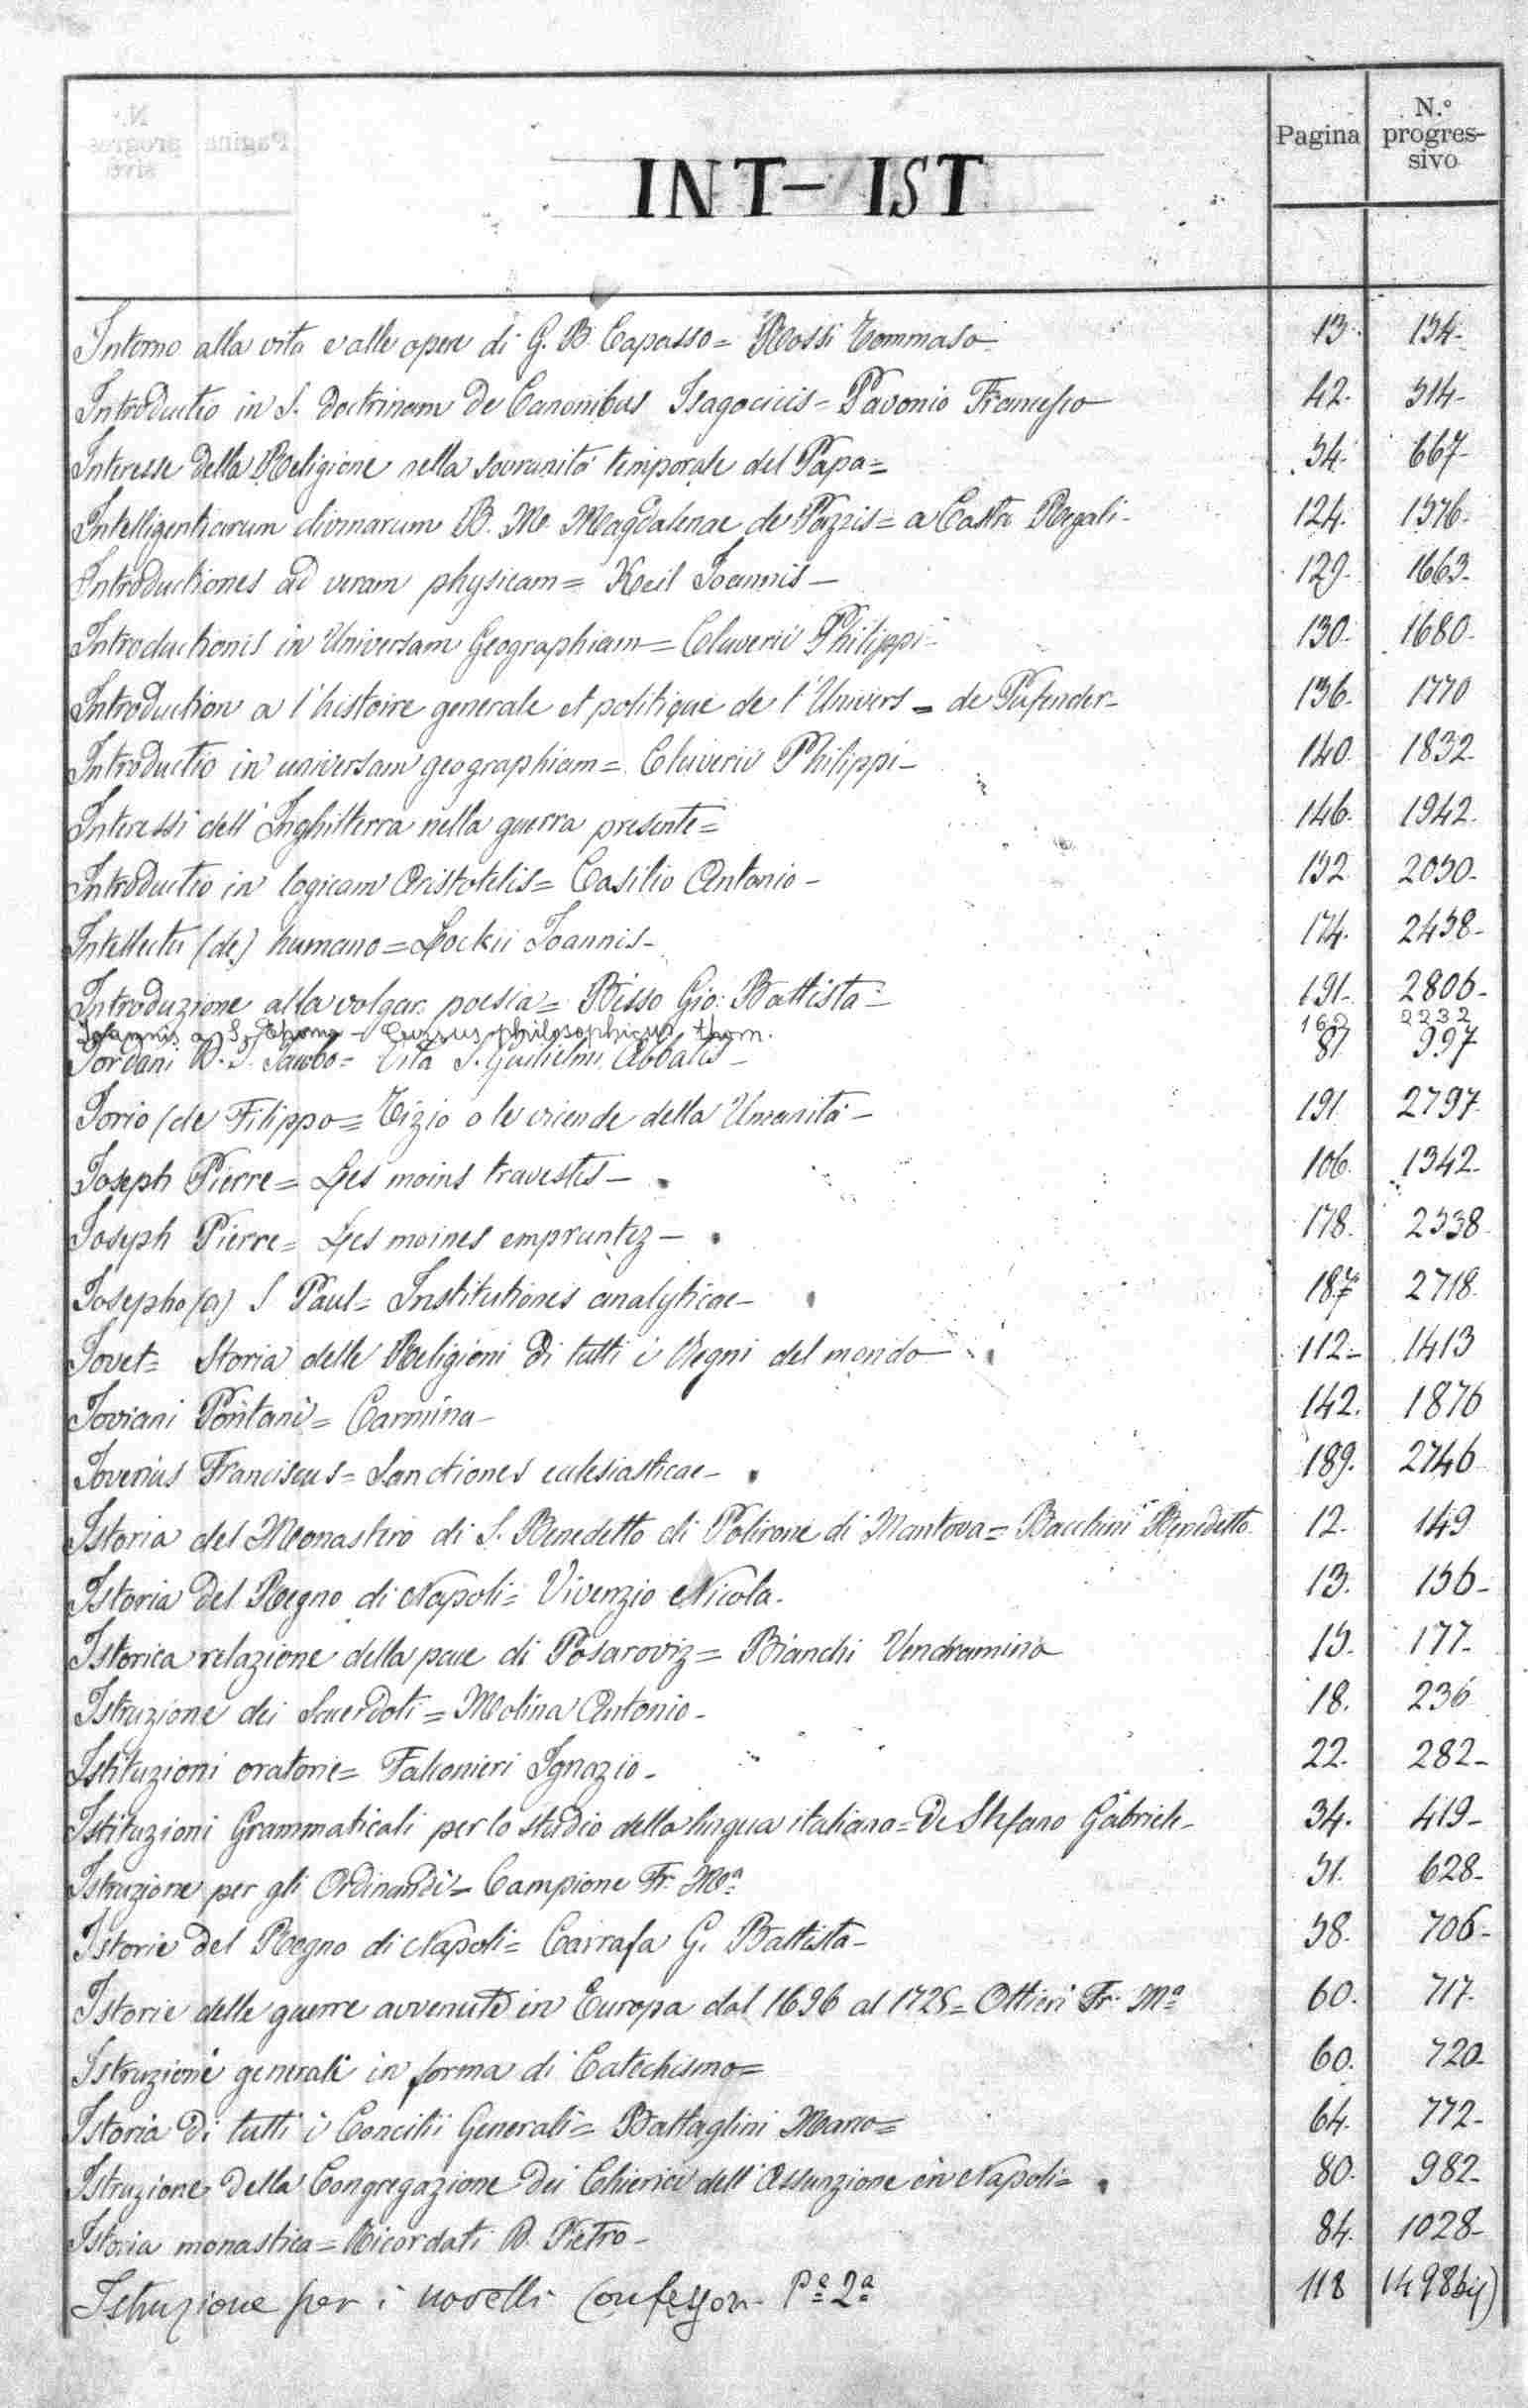 Pagina N.º progres-
sivo
INT - IST
Intorno alla vita e alle opere di G. B. Capasso = Rossi Tommaso 13. 154-
Introductio in S. doctrinam de Canonibus Isagocicis - Pavonio Francesco 42. 514-
Interesse della Religione nella sovranità temporale del Papa = 54. 667-
Intelligentiarum divinarum B. M. Magdalenae de Pazzis = a Castro Regali - 124. 1576.
Introductiones ad veram physicam = Keil Joannis - 129. 1663.
Introductionis in Universam Geographiam = Cluverii Philippi - 130. 1680.
Introduction a l'histoire generale et politique de l'Univers = de Pufender - 136. 1770
Introductio in universam geographiam = Cluverii Philippi - 140. 1832.
Interessi dell'Inghilterra nella guerra presente = 146. 1942.
Introductio in logicam Aristotelis = Casilio Antonio - 152 2030-
Intellectu (de) humano = Lockii Joannis - 174. 2458-
Introduzione alla volgar. poesia = Bisso Gio: Battista - 191- 2806-
Joannis a S. Thoma - Cursus philosophicus thom. 2232
Jordani D. J. Jacobo = Vita S. Guilielmi Abbatis - 81 997
Jorio (de Filippo = Tizio o le vicende della Umanità - 191 2797.
Joseph Pierre = Les moins travestis - 106. 1342.
Joseph Pierre = Les moines empruntez - 178. 2538
Josepho (a) S Paul = Institutiones analyticae - 187 2718.
Jovet = Storia delle Religioni di tutti i Regni del mondo - 112- 1413
Joviani Pontani = Carmina - 142. 1876
Joverius Franciscus = Sanctiones ecclesiasticae - 189. 2746
Istoria del Monastero di S. Benedetto di Polirone di Mantova = Bacchini Benedetto 12. 149
Istoria del Regno di Napoli = Vivenzio Nicola. 13. 156-
Istorica relazione della pace di Posaroviz = Bianchi Vendramino 15. 177-
Istruzione dei Sacerdoti = Molina Antonio - 18. 236
Istituzioni oratorie = Falconieri Ignazio - 22. 282-
Istituzioni Grammaticali per lo studio della lingua italiana = De Stefano Gabriele - 34. 419-
Istruzione per gli Ordinandi = Campione Fr. Mª 51. 628-
Istorie del Regno di Napoli = Carrafa G. Battista - 58. 706-
Istorie delle guerre avvenute in Europa dal 1696 al 1725 = Ottieri Fr. Mª 60. 717.
Istruzioni generali in forma di Catechismo = 60. 720-
Istoria di tutti i Concilii Generali = Battaglini Marco = 64. 772-
Istruzione della Congregazione dei Chierici dell'Assunzione in Napoli = 80. 982-
Istoria monastica = Ricordati D. Pietro - 84. 1028-
Istruzione per i novelli Confessori Pᵉ 2ª 118 1498bis)